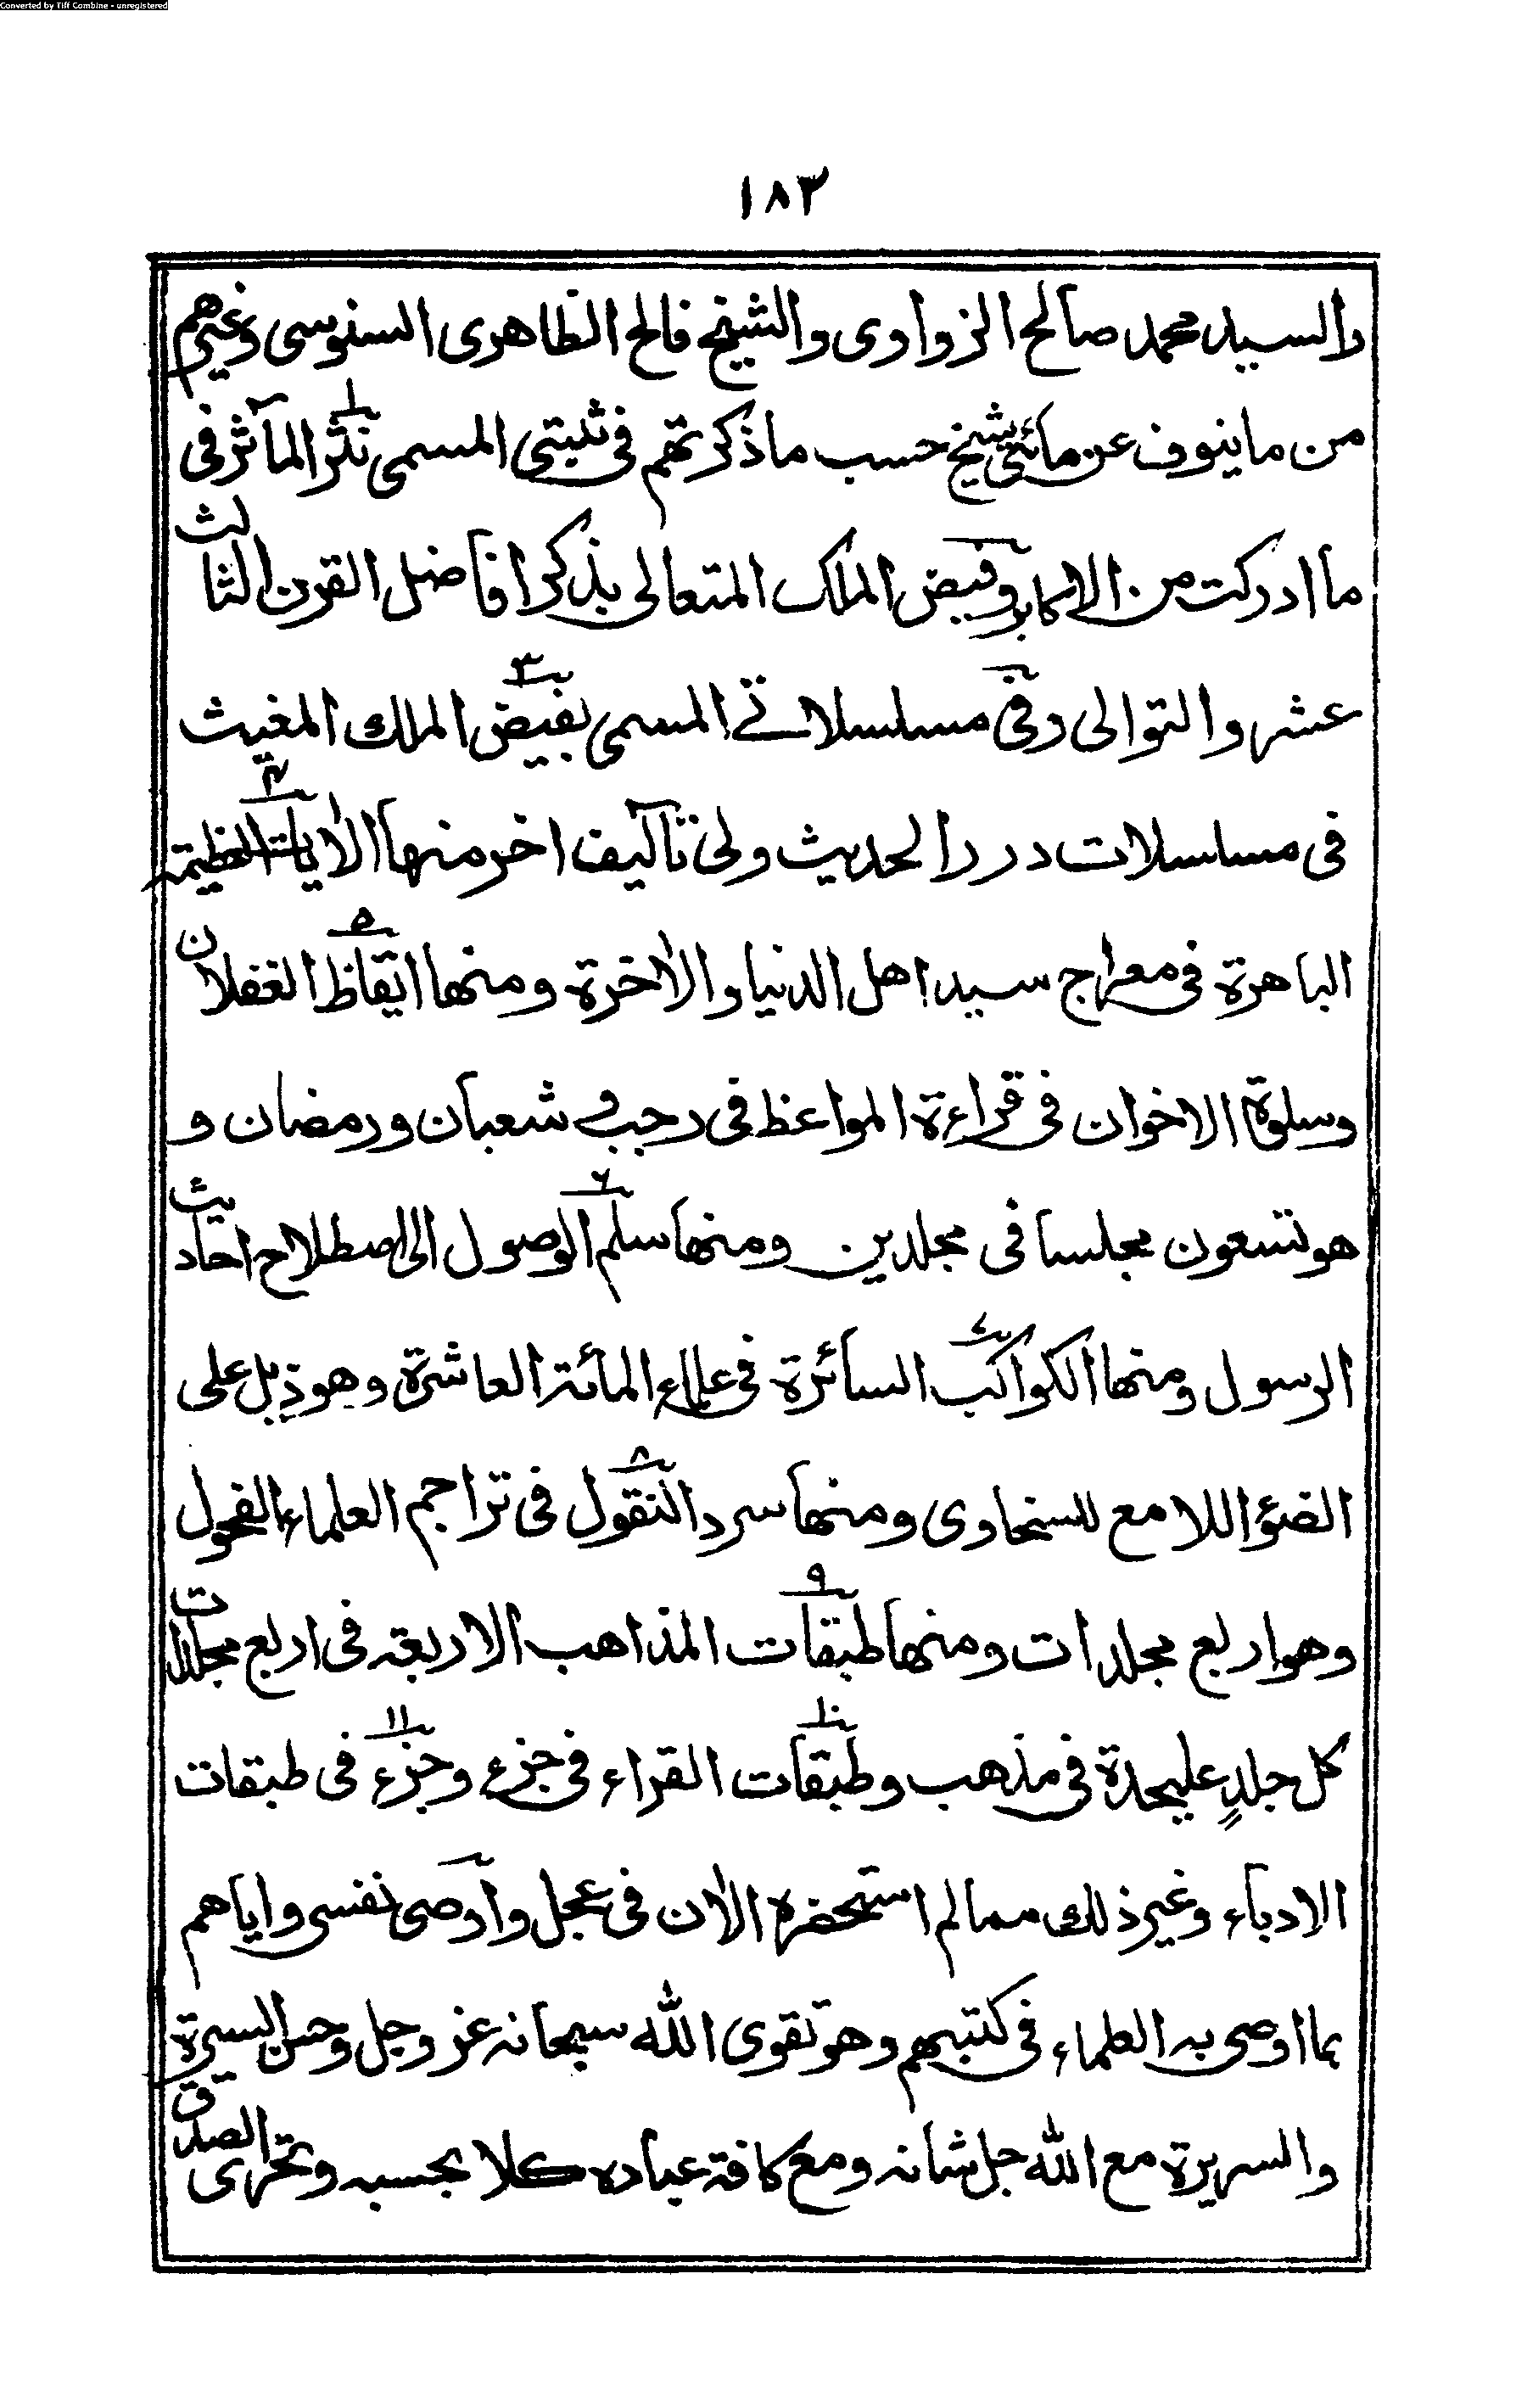 Converted by Tiff Combine - unregistered
١٨٣
والسيد محمد صالح الزواوى والشيخ فالح الظاهرى السنوسى وغيرهم
من ماينوف عن مائتى شيخ حسب ما ذكرتهم فى ثبتى المسمى نثر المآثر فى
ما ادركت من الاكابر وفيض الملك المتعالى بذكر افاضل القرن الثالث
عشر والتوالى وفى مسلسلاتے المسمى بفيض الملك المغيث
فى مسلسلات درر الحديث ولى تآليف اخر منها الايات العظيمة
الباهرة فى معراج سيد اهل الدنيا والاخرة ومنها ايقاظ الغفلان
وسلوة الاخوان فى قراءة المواعظ فى رجب و شعبان ورمضان و
هو تسعون مجلسا فى مجلدين ومنها سلم الوصول الى اصطلاح احاديث
الرسول ومنها الكواكب السائرة فى علماء المائة العاشرة وهو ذيل على
الضوء اللامع للسخاوى ومنها سرد النقول فى تراجم العلماء الفحول
وهو اربع مجلدات ومنها طبقات المذاهب الاربعة فى اربع مجلدات
كل جلدٍ عليحدة فى مذهب وطبقات القراء فى جزء وجزء فى طبقات
الادباء وغير ذلك ممالم استحضره الان فى عجل وأوصى نفسى واياهم
بما اوصى به العلماء فى كتبهم وهو تقوى الله سبحانه عز وجل وحسن السيرة
والسريرة مع الله جل شانه ومع كافة عباده كلا بحسبه وتحرى الصدق